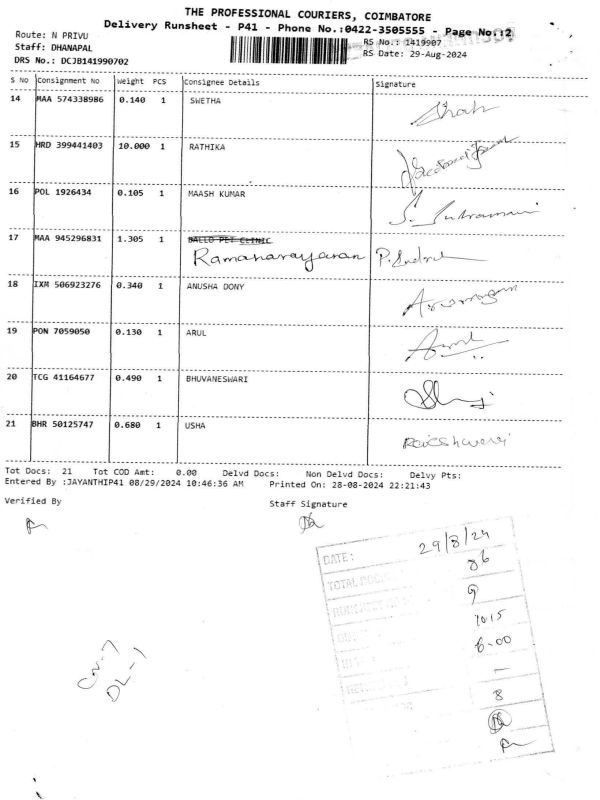 THE PROFESSIONAL COURIERS, COIMBATORE
Delivery Runsheet - P41 - Phone No.:0422-3505555 - Page No.:2
Route: N PRIVU
RS No.: 1419907
Staff: DHANAPAL
RS Date: 29-Aug-2024
DRS No.: DCJB141990702
S No Consignment No Weight PCS Consignee Details Signature
14 MAA 574338986 0.140 1 SWETHA
15 HRD 399441403 10.000 1 RATHIKA
16 POL 1926434 0.105 1 MAASH KUMAR
17 MAA 945296831 1.305 1 BALLO PET CLINIC
Ramanarayanan
18 IXM 506923276 0.340 1 ANUSHA DONY
19 PON 7059050 0.130 1 ARUL
20 TCG 41164677 0.490 1 BHUVANESWARI
21 BHR 50125747 0.680 1 USHA
Rajeshwari
Tot Docs: 21 Tot COD Amt: 0.00 Delvd Docs: Non Delvd Docs: Delvy Pts:
Entered By :JAYANTHIP41 08/29/2024 10:46:36 AM Printed On: 28-08-2024 22:21:43
Verified By Staff Signature
DATE: 29/8/24
TOTAL 86
9
10.15
6.00
8
CN-7
DL-1